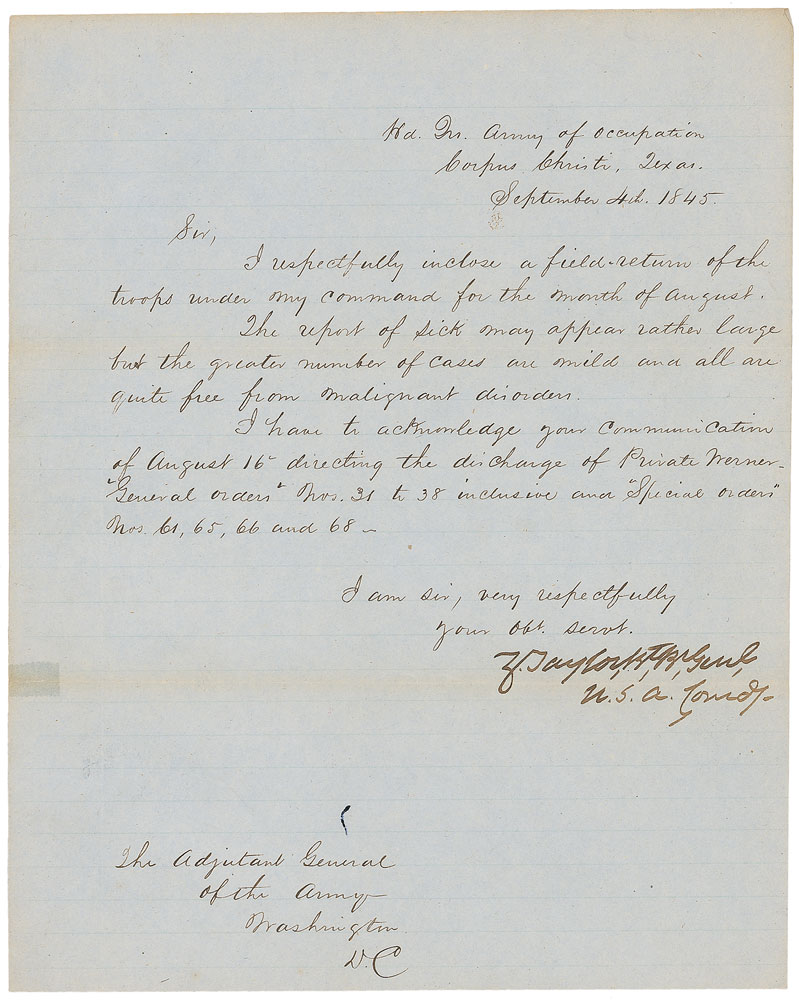 Hd. Qrs. Army of Occupation
Corpus Christi, Texas.
September 4th. 1845.
Sir,
I respectfully inclose a field-return of the
troops under my command for the month of August.
The report of sick may appear rather large
but the greater number of cases are mild and all are
quite free from malignant disorders.
I have to acknowledge your communication
of August 15 directing the discharge of Private Werner-
"General orders" Nos. 31 to 38 inclusive and "Special orders"
Nos. 61, 65, 66 and 68-
I am sir, very respectfully
your obt. servt.
Z. Taylor, Bt. Br. Genl,
U.S.A. Comdg-
The Adjutant General
of the Army
Washington
D.C